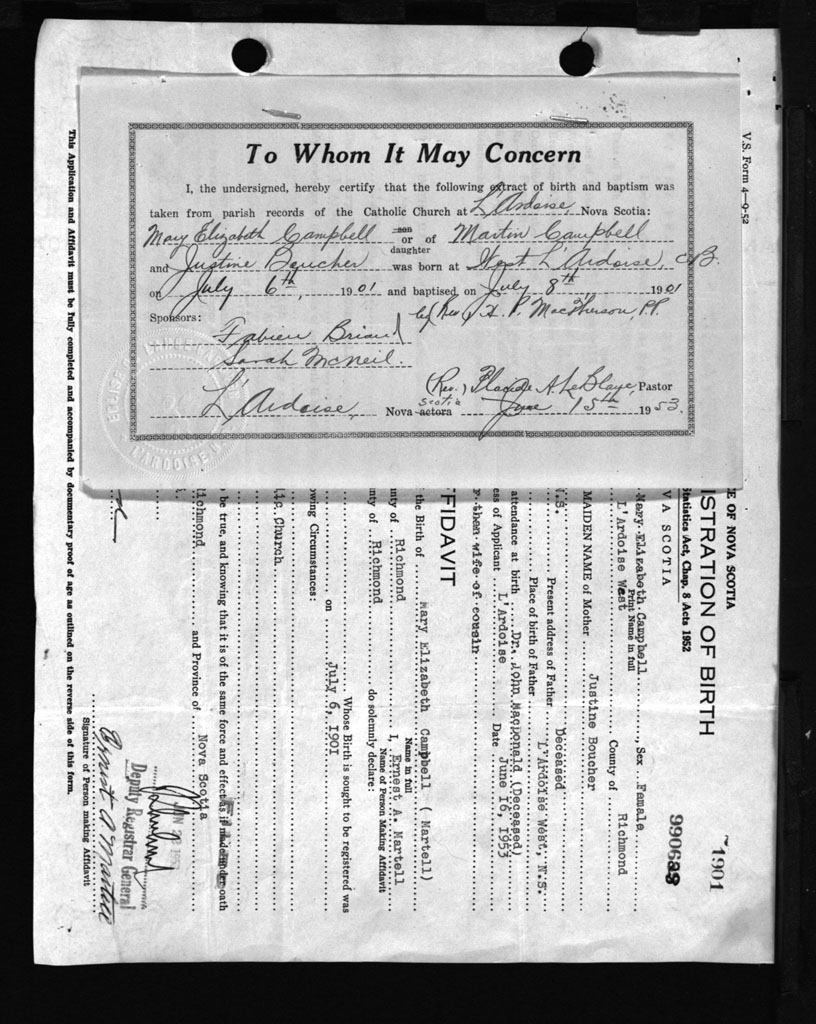 V.S. Form 4—9-52
To Whom It May Concern
I, the undersigned, hereby certify that the following extract of birth and baptism was
taken from parish records of the Catholic Church at L'Ardoise, Nova Scotia:
Mary Elizabeth Campbell son or daughter of Martin Campbell
and Justine Boucher was born at West L'Ardoise, C.B.
on July 6th, 1901 and baptised on July 8th, 1901
Sponsors: by Rev. H. P. MacPherson, P.P.
Fabien Briand
Sarah McNeil.
(Rev.) A. LeBlanc, Pastor
L'Ardoise, Nova Scotia June 15th 1953.
ÉGLISE
L'ARDOISE N
E OF NOVA SCOTIA
Statistics Act, Chap. 8 Acts 1952
VA SCOTIA
ISTRATION OF BIRTH
~1901
990688
Mary Elizabeth Campbell, Sex Female
Print Name in full
L'Ardoise West County of Richmond
MAIDEN NAME of Mother Justine Boucher
N.S.
Present address of Father Deceased
Place of birth of Father L'Ardoise West, N.S.
attendance at birth Dr. John MacDonald (Deceased)
ess of Applicant L'Ardoise Date June 16, 1953
r then wife of cousin
FFIDAVIT
the Birth of Mary Elizabeth Campbell ( Martell)
Name in full
unty of Richmond I, Ernest A. Martell
Name of Person Making Affidavit
nty of Richmond do solemnly declare:
Whose Birth is sought to be registered was
on July 6, 1901
owing Circumstances:
lic Church
be true, and knowing that it is of the same force and effect as if made under oath
Richmond and Province of Nova Scotia
JUN 22 195
Deputy Registrar General
Ernest A Martell
Signature of Person making Affidavit
This Application and Affidavit must be fully completed and accompanied by documentary proof of age as outlined on the reverse side of this form.